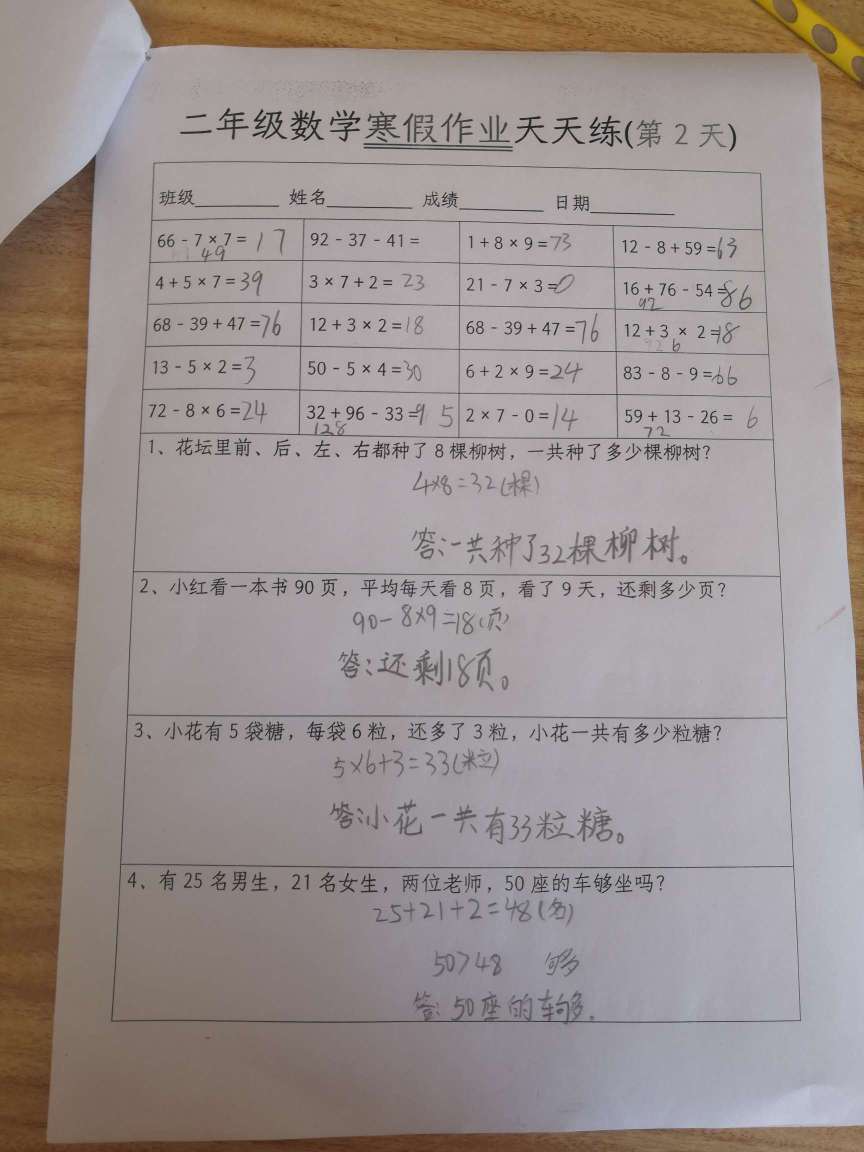 二年级数学寒假作业天天练(第 2 天)
班级 姓名 成绩 日期
66 - 7 × 7 = 17 92 - 37 - 41 = 1 + 8 × 9 = 73 12 - 8 + 59 = 63
49
4 + 5 × 7 = 39 3 × 7 + 2 = 23 21 - 7 × 3 = 0 16 + 76 - 54 = 86
92
68 - 39 + 47 = 76 12 + 3 × 2 = 18 68 - 39 + 47 = 76 12 + 3 × 2 = 18
6
13 - 5 × 2 = 3 50 - 5 × 4 = 30 6 + 2 × 9 = 24 83 - 8 - 9 = 66
72 - 8 × 6 = 24 32 + 96 - 33 = 95 2 × 7 - 0 = 14 59 + 13 - 26 = 6
128 72
1、花坛里前、后、左、右都种了 8 棵柳树，一共种了多少棵柳树？
4×8=32(棵)
答:一共种了32棵柳树。
2、小红看一本书 90 页，平均每天看 8 页，看了 9 天，还剩多少页？
90-8×9=18(页)
答:还剩18页。
3、小花有 5 袋糖，每袋 6 粒，还多了 3 粒，小花一共有多少粒糖？
5×6+3=33(粒)
答:小花一共有33粒糖。
4、有 25 名男生，21 名女生，两位老师，50 座的车够坐吗？
25+21+2=48(名)
50>48 够
答:50座的车够.